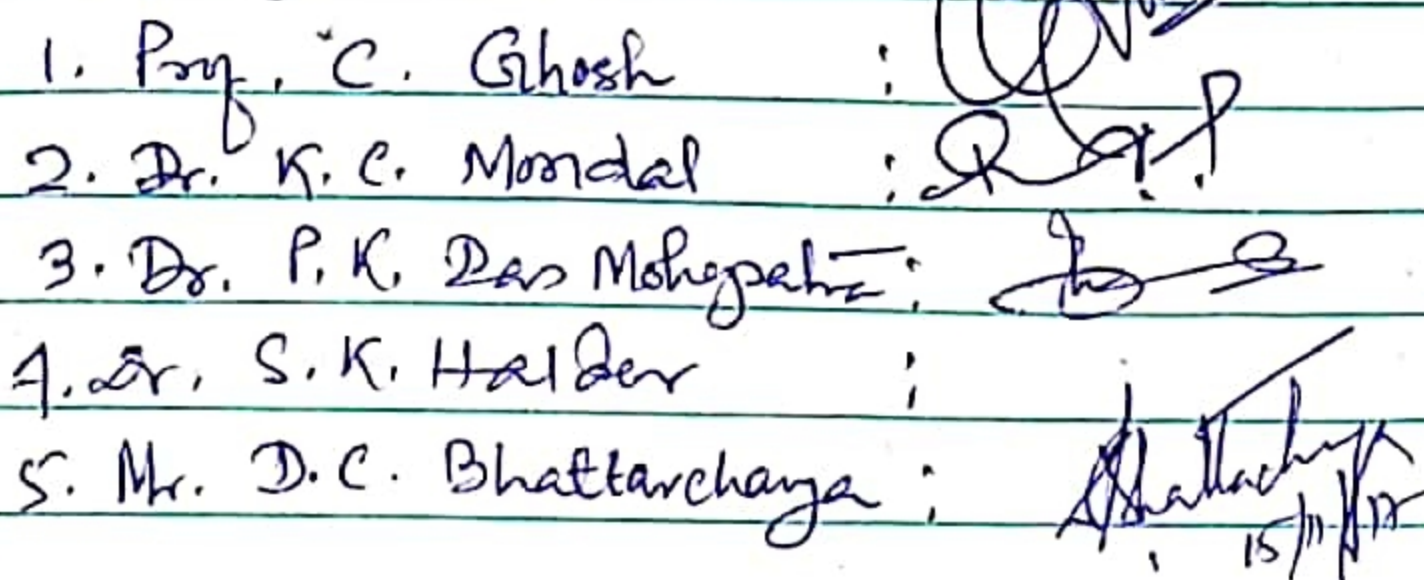 1. Prof. C. Ghosh :
2. Dr. K. C. Mondal :
3. Dr. P. K. Das Mohapatra :
4. Dr. S. K. Halder :
5. Mr. D. C. Bhattarcharya : Bhattacharya
15/11/17